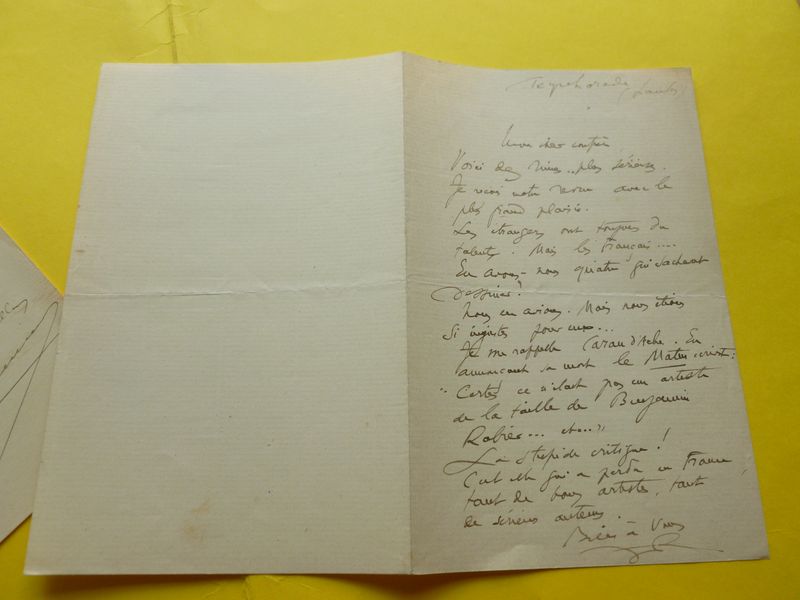 Mon cher confrère,
Voici des rimes.. plus sérieuses.
Je reçois votre revue avec le
plus grand plaisir.
Les étrangers ont toujours du
talent. Mais les Français....
En avons-nous quatre qui sachent
dessiner?
Nous en avions. Mais nous étions
si injustes pour eux...
Je me rappelle Caran d'Ache. En
annonçant sa mort le Matin écrivit:
"Certes ce n'était pas un artiste
de la taille de Benjamin
Rabier... etc.."
La stupide critique!
C'est elle qui a perdu en France,
tant de bons artistes, tant
de sérieux auteurs.
Bien à Vous